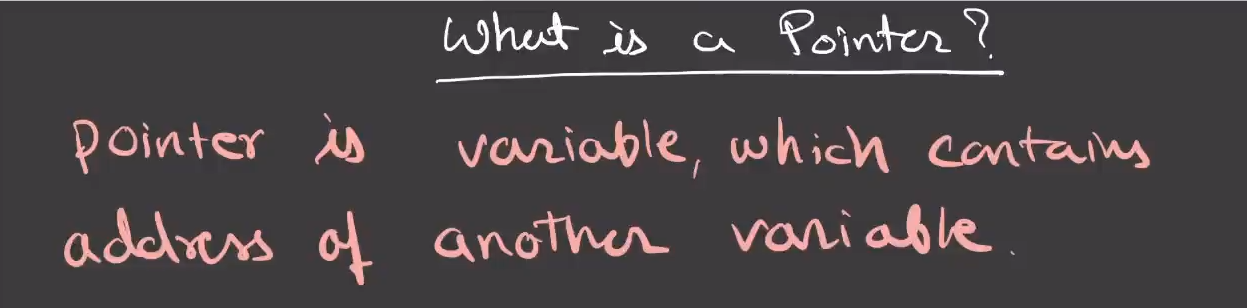 What is a Pointer?
pointer is variable, which contains
address of another variable.